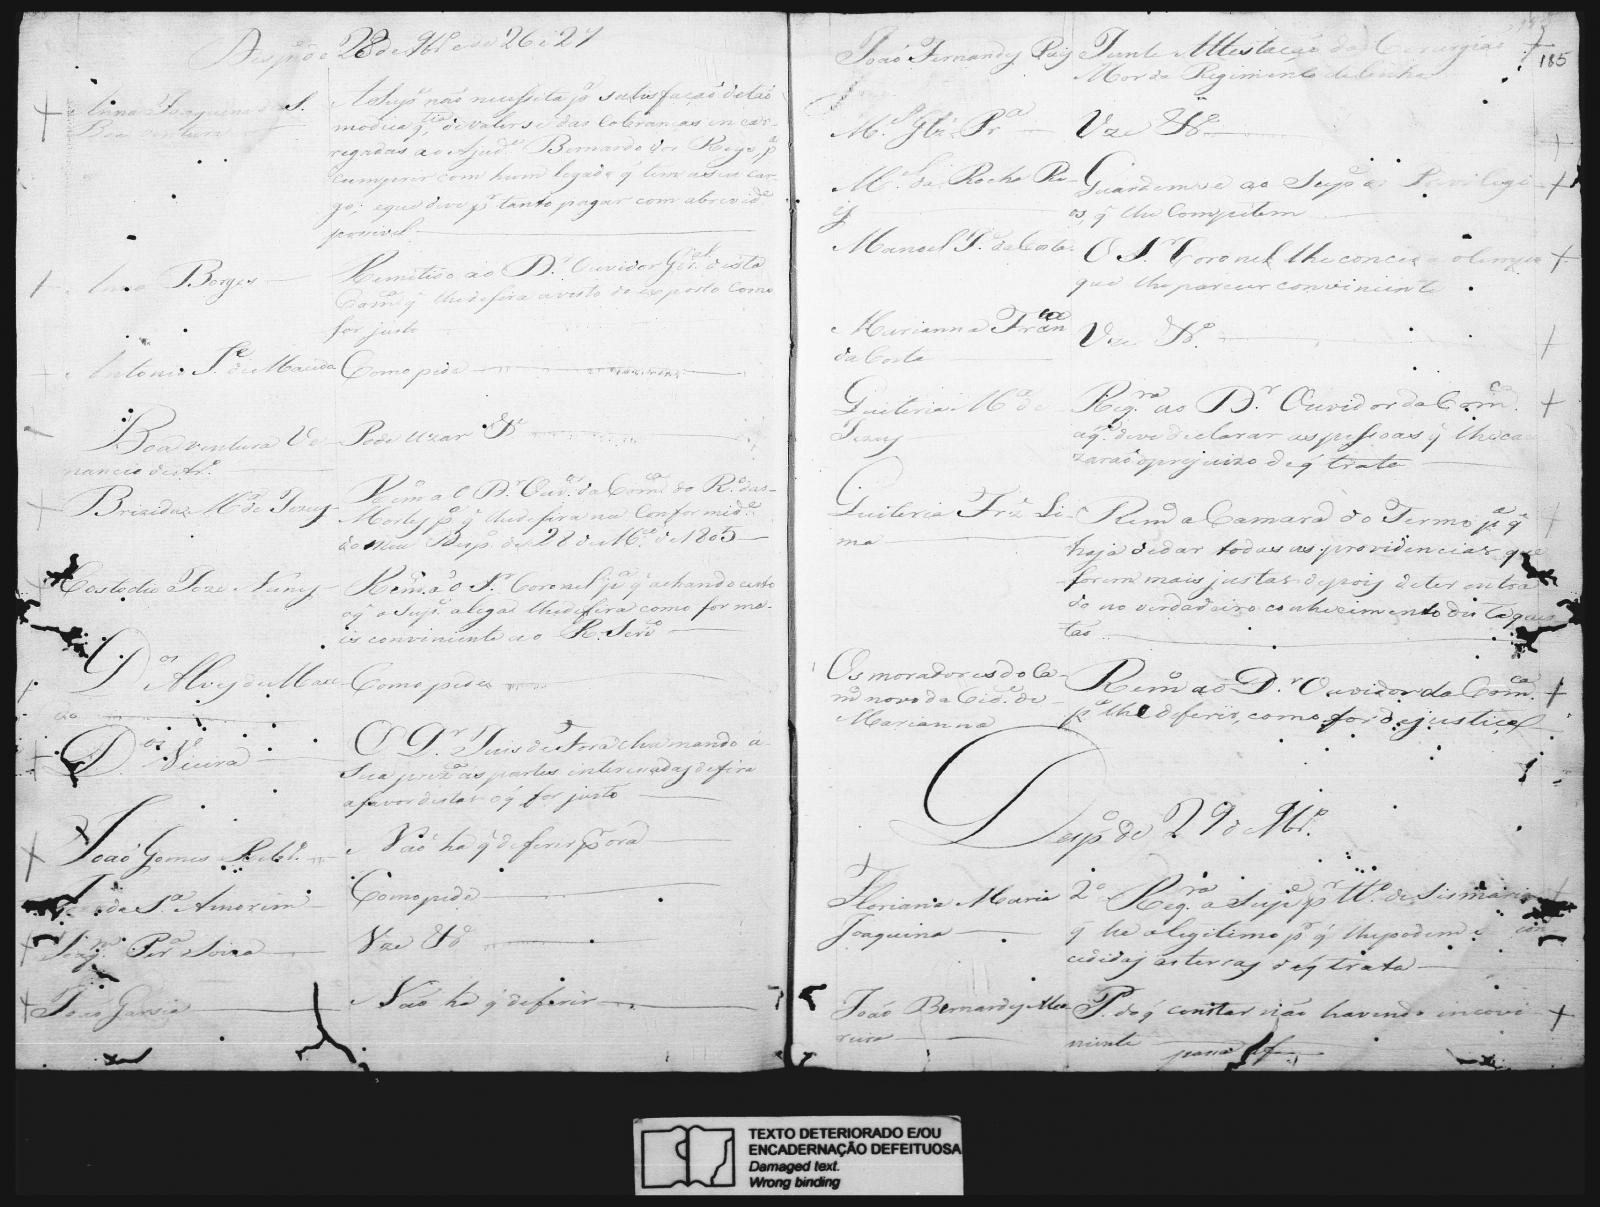 Desp.o de 28 de 9br.o e de 26 e 27
Anna Joaquina de S.
Boa ventura
A Sup.e não necessita p.a satisfação de tão
modica q.tia de valerse das cobranças encar-
regadas ao Ajud.e Bernardo dos Reys, p.a
cumprir com hum legado q̃ tem a seu car-
go; e que deve p.r tanto pagar com a brevid.e
possivel
Borges
Remetido ao D.r Ouvidor G.al desta
Com.ca q̃ lhe defira a vista do exposto como
for justo
Antonio S.e de Macedo
Como pede
Boaventura Ve-
nancio de
Pode uzar
Brizida M.a de Jesus
Rem.do ao D.r Ouv.or da Com.ca do R.o das
Mortes p.a q̃ lhe defira na conformid.e
do meu Desp.o de 28 de M.o de 1805
Costodio Joze Nunes
Rem.do ao S.r Coronel p.a q̃ achando certo
o q̃ o Sup.e alega lhe defira como for ma-
is conviniente ao R. Serv.o
D.os Alves de Mace-
do
Como pede
D.os Vieira
O D.r Juis de Fora chamando á
sua prez.ca as partes interessadas defira
a favor destas o q̃ for justo
João Gomes Rebl.o
Não ha q̃ deferir p.r ora
de S.a Amorim
Como pede
Joaq.m Per.a de Soiza
Uze
João Garcia
Não ha q̃ deferir
185
João Fernandes Reis
Junte Attestação do Cerurgião
Mor do Regimento de Linha
M.el Glz. Pr.a
Uze
M.el da Rocha Re-
is
Guardemse ao Sup.e os Previlegi-
os, q̃ lhe Competem
Manoel F.a da Costa
O S.r Coronel lhe conceda o tempo
que lhe parecer conviniente
Marianna Fran.ca
da Costa
Uze
Quiteria M.a de
Jesus
Reqr.a ao D.r Ouvidor da Com.ca
a q.m deve declarar as pessoas q̃ lhe cau-
zarão o prejuizo de q̃ trata
Quiteria Frz̃ Li-
ma
Rem.do a Camara do Termo p.a q̃
haja de dar todas as providencias que
forem mais justas depois de ter entra-
do no verdadeiro conhecimento do
Os moradores do Ca-
m.o novo da Cid.e de
Marianna
Rem.do ao D.r Ouvidor da Com.ca
p.a lhe deferir, como for de justiça
Desp.o de 29 de 9br.o
Floriana Maria
Joaquina
2.o Reqr.a a Sup.e p.r tt.o de Sismaria
q̃ he o legitimo p.r q̃ lhe podem ser con-
cedidas as terras de q̃ trata
João Bernardes Mo-
reira
P. do q̃ constar não havendo inconvi-
niente
TEXTO DETERIORADO E/OU
ENCADERNAÇÃO DEFEITUOSA
Damaged text.
Wrong binding